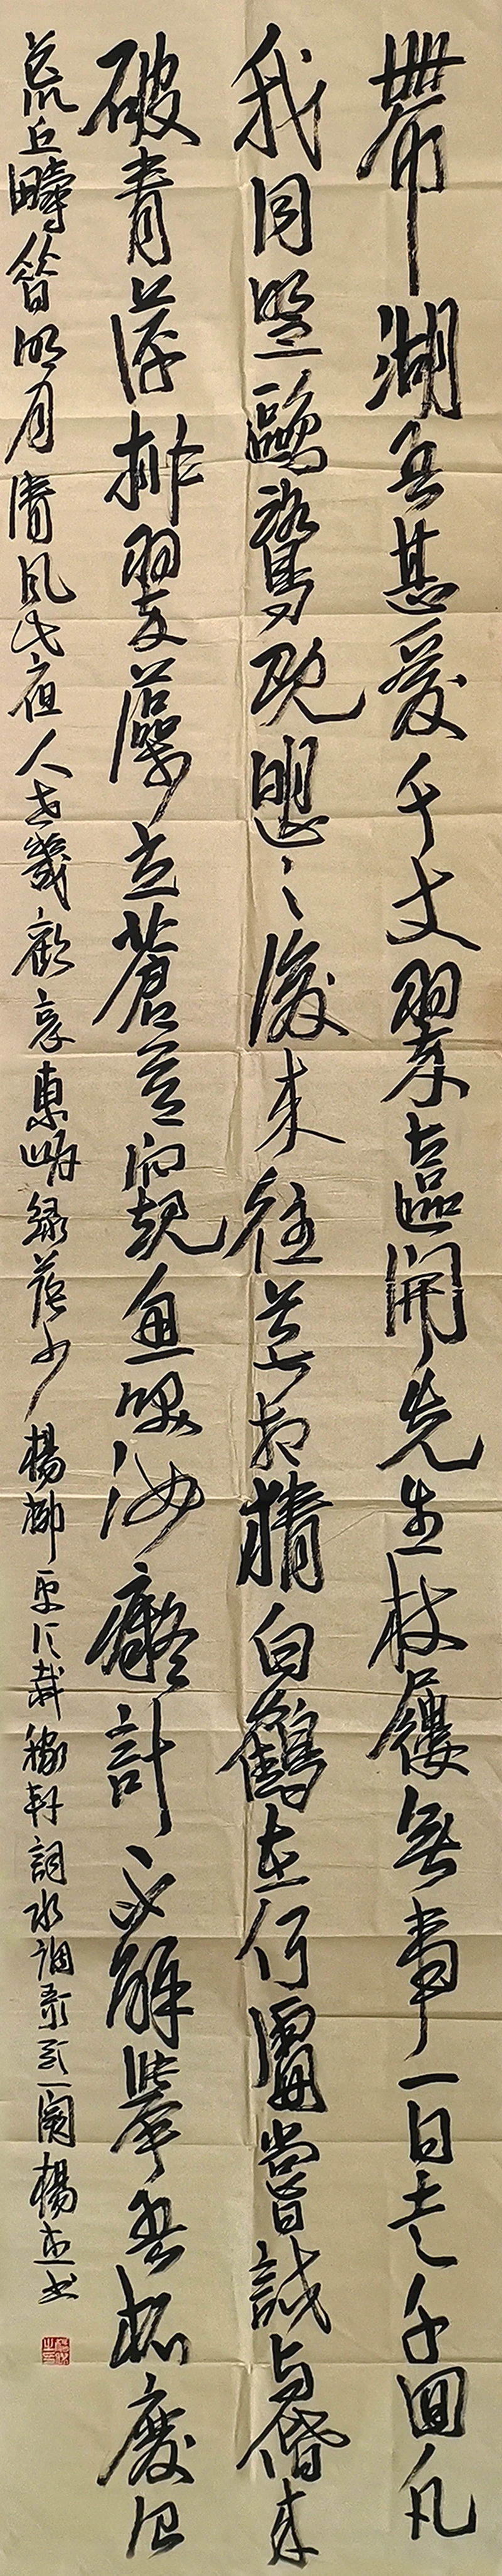 帶湖吾甚愛千丈翠奩開先生杖屨無事一日走千回凡
我同盟鷗鷺既盟之後來往莫相猜白鶴在何處嘗試與偕來
破青萍排翠藻立蒼苔窺魚笑汝癡計不解舉吾杯廢沼
荒丘疇昔明月清風此夜人世幾歡哀東岸綠蔭少楊柳更須栽稼軒詞水調歌頭一闋楊逸書